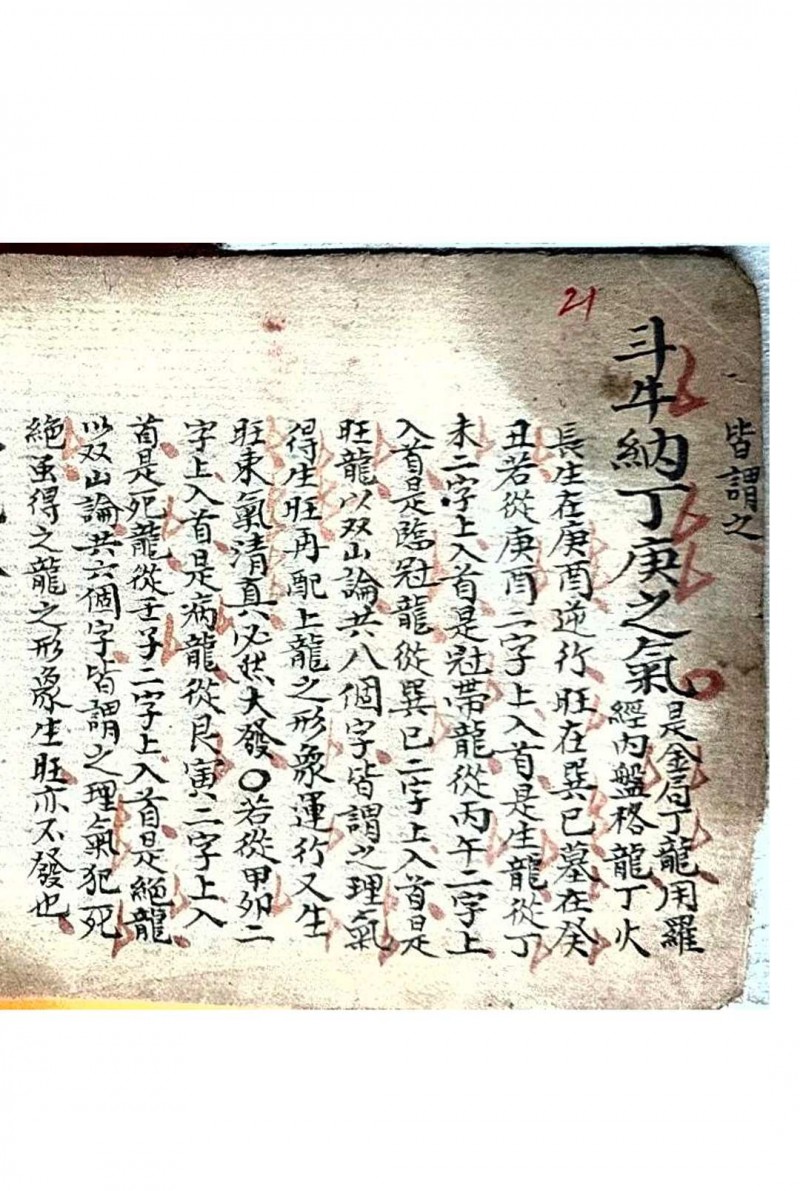 21
皆謂之
斗牛納丁庚之氣
是金局丁龍用羅
經內盤格龍丁火
長生在庚酉逆行旺在巽巳墓在癸
丑若從庚酉二字上入首是生龍從丁
未二字上入首是冠帶龍從丙午二字上
入首是臨冠龍從巽巳二字上入首是
旺龍以双山論共八個字皆謂之理氣
得生旺再配上龍之形象運行又生
旺東氣清真必然大發〇若從甲卯二
字上入首是病龍從艮寅二字上入
首是死龍從壬子二字上入首是絕龍
以双山論共六個字皆謂之理氣犯死
絕虽得之龍之形象生旺亦不發也